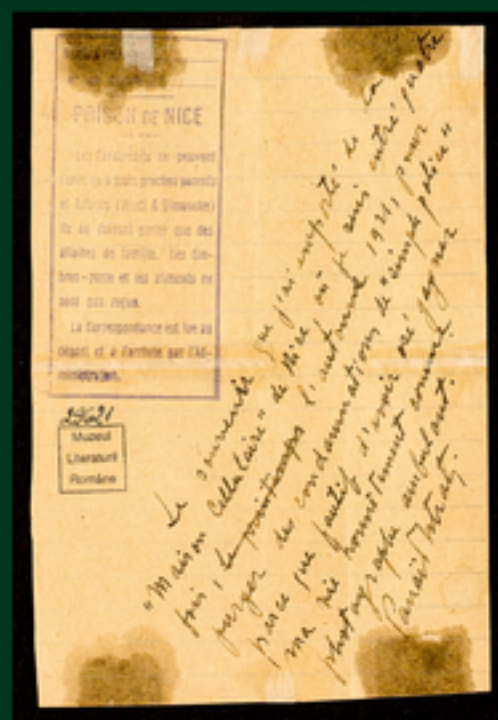 PRISON DE NICE
Les Condamnés ne peuvent
écrire qu'à leurs proches parents
et tuteurs (Jeudi & Dimanche)
Ils ne doivent parler que des
affaires de famille. Les tim-
bres-poste et les aliments ne
sont pas reçus.
La Correspondance est lue au
départ et à l'arrivée par l'Ad-
ministration.
Muzeul
Literaturii
Române
Le souvenir que j'ai emporté de la
"Maison Cellulaire" de Nice où je suis entré quatre
fois, le printemps l'automne 1921, pour
purger des condamnations de "simple police"
parce que fautif d'avoir osé gagner
ma vie honnêtement comme
photographe ambulant.
Panait Istrati